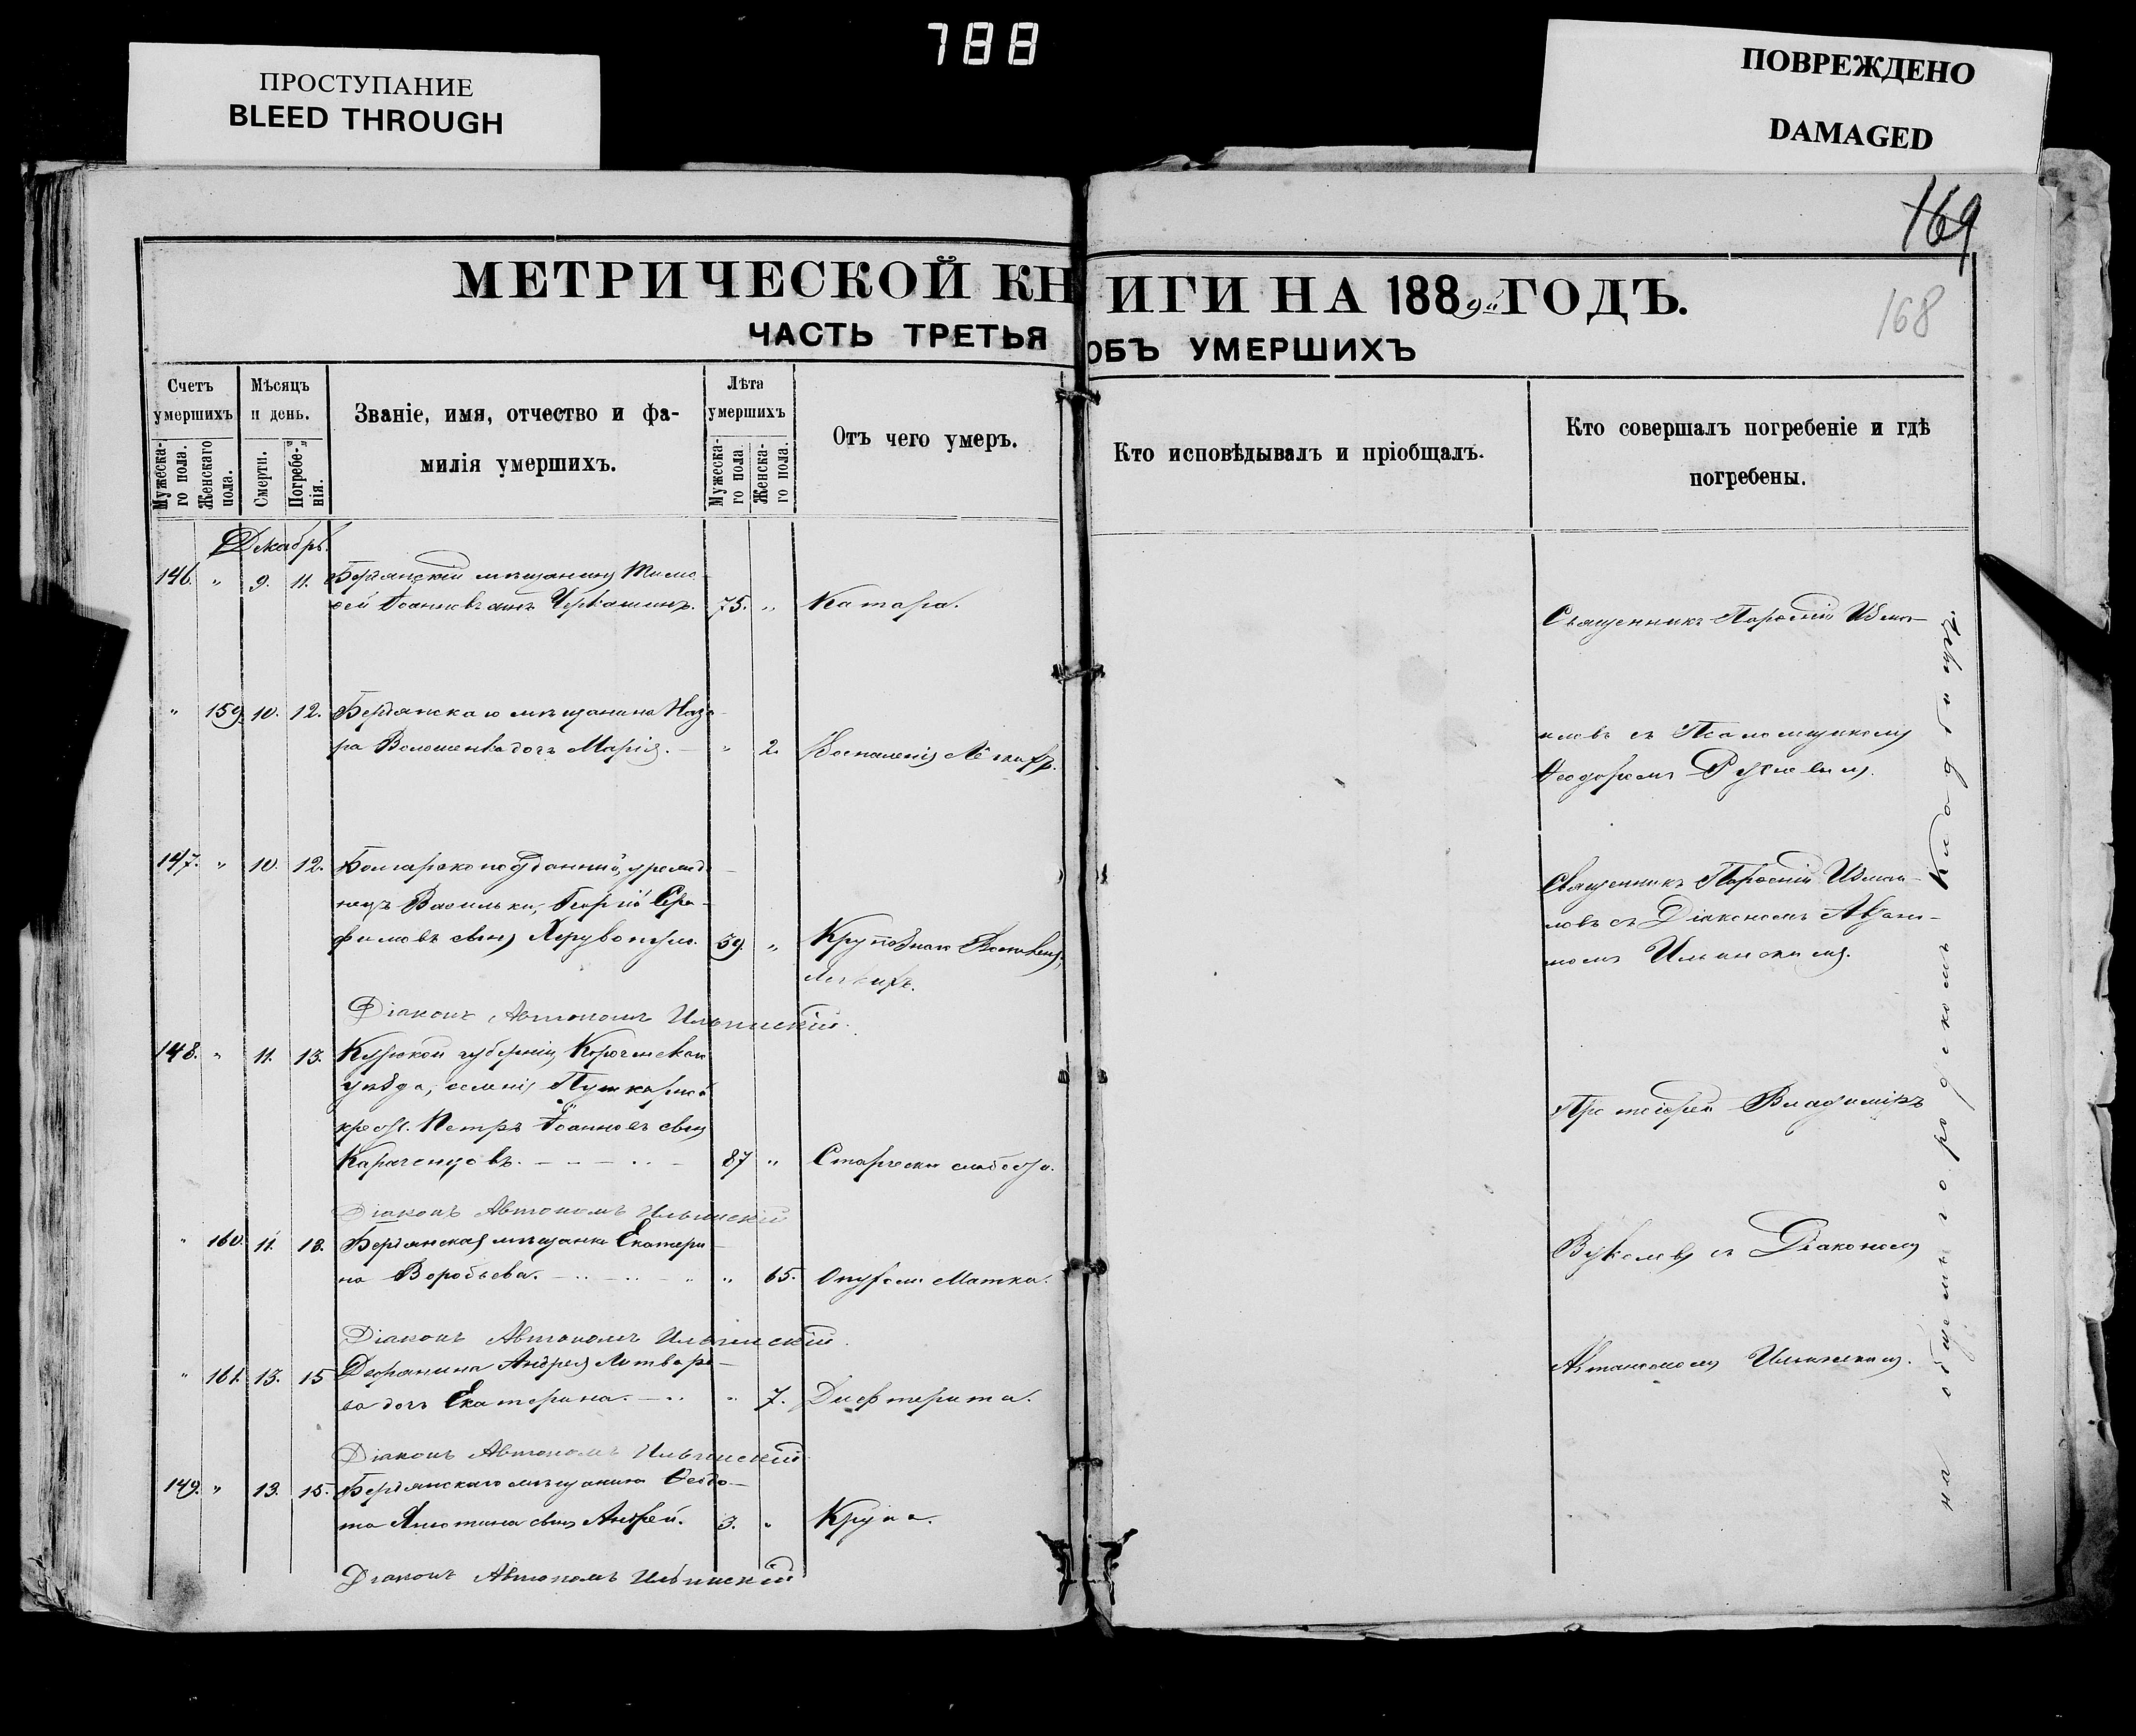 788
ПРОСТУПАНИЕ
BLEED THROUGH
ПОВРЕЖДЕНО
DAMAGED
169
168
МЕТРИЧЕСКОЙ КНИГИ НА 1889й ГОДЪ.
ЧАСТЬ ТРЕТЬЯ ОБЪ УМЕРШИХЪ
Счетъ умершихъ
Мужеска-го пола.
Женскаго пола.
Мѣсяцъ и день.
Смерти.
Погребе-нія.
Званіе, имя, отчество и фа-
милія умершихъ.
Лѣта умершихъ
Мужеска-го пола
Женска-го пола.
Отъ чего умеръ.
Кто исповѣдывалъ и пріобщалъ.
Кто совершалъ погребеніе и гдѣ
погребены.
Декабрь.
146. " 9. 11. Бердянскій мѣщанинъ Тимо-
фей Іоанновъ сынъ 75. " Катара.
Священникъ Порфирій Измаи-
" 159. 10. 12. Бердянскаго мѣщанина Наза-
ра Волошенка дочь Марія. " 2. Воспаленія Легкихъ.
ловъ съ Псаломщикомъ
Ѳеодоромъ
147. " 10. 12. Болгарско подданный, уроже-
нецъ Васильки, Георгій Сера-
фимовъ сынъ 59. " Крупознаго Воспаленія
Легкихъ.
Священникъ Порфирій Измаи-
ловъ съ Діакономъ Автоно-
момъ Ильинскимъ.
Діаконъ Автономъ Ильинскій.
148. " 11. 13. Курской губерніи, Корочанскаго
уѣзда, селенія Пушкарной
крест. Петръ Іоанновъ сынъ
Карагенцовъ. 87 " Старческой слабости.
Протоіерей Владиміръ
Діаконъ Автономъ Ильинскій
" 160. 11. 13. Бердянская мѣщанка Екатери-
на Воробьева. " 65. Опухоли Матки.
Вуколовъ съ Діакономъ
Діаконъ Автономъ Ильинскій.
" 161. 13. 15 Дворянина Андрея Литваре-
ва дочь Екатерина. " 7. Дифтерита.
Автономомъ Ильинскимъ.
Діаконъ Автономъ Ильинскій
149. " 13. 15. Бердянскаго мѣщанина Ѳеодо-
та сынъ Андрей. 3. " Крупа.
Діаконъ Автономъ Ильинскій
на общемъ городскомъ кладбищѣ.